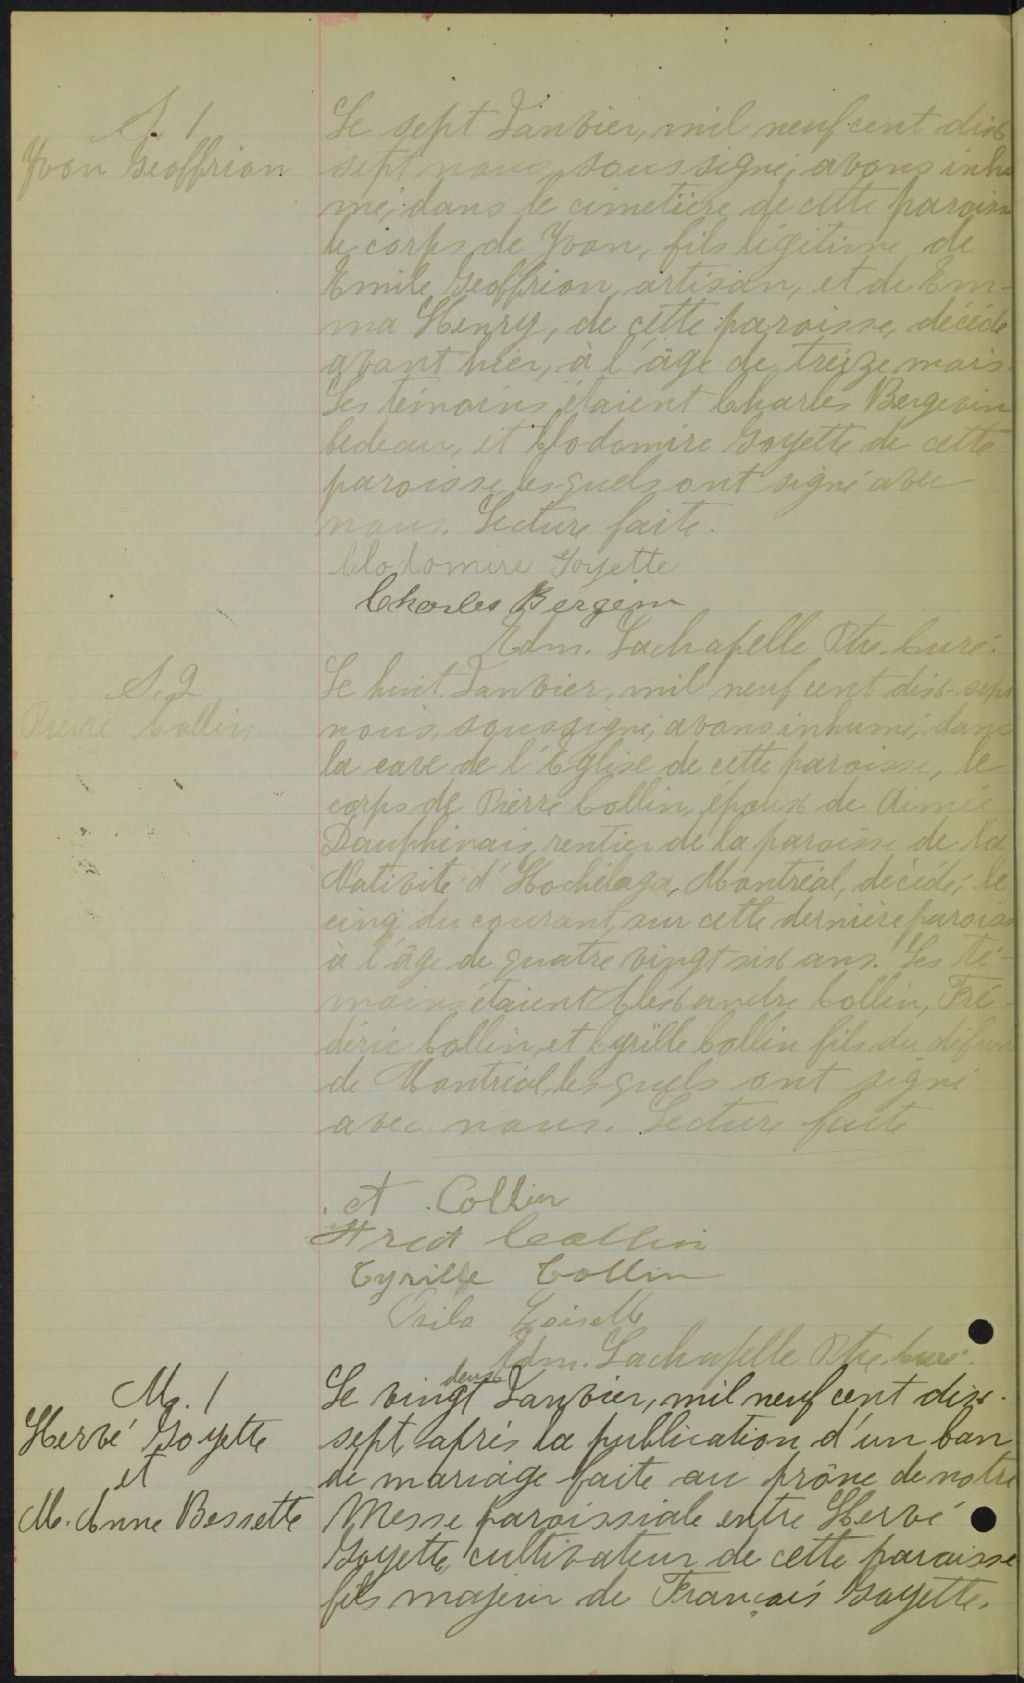 S. 1
Yvon Geoffrion
Le sept Janvier, mil neuf cent dix
sept nous, soussigné, avons inhu
mé, dans le cimetière de cette paroisse
le corps de Yvon, fils légitime de
Emile Geoffrion, artisan, et de Em-
ma Henry, de cette paroisse, décédé
avant hier, à l'âge de treize mois.
Les témoins étaient Charles Bergevin
bedeau, et Clodomire Goyette de cette
paroisse lesquels ont signé avec
nous. Lecture faite.
Clodomire Goyette
Charles Bergevin
Edm. Lachapelle Ptre. Curé.
S. 2
Pierre Collin
Le huit Janvier, mil neuf cent dix-sept
nous, soussigné, avons inhumé, dans
la cave de l'Eglise de cette paroisse, le
corps de Pierre Collin, époux de Aimée
Dauphinais, rentier de la paroisse de la
Nativité d'Hochelaga, Montréal, décédé, le
cinq du courant, sur cette dernière paroisse
à l'âge de quatre vingt six ans. Les té-
moins étaient Alexandre Collin, Fré-
déric Collin, et Cyrille Collin fils du défunt
de Montréal, lesquels ont signé
avec nous. Lecture faite
A. Collin
Fred Collin
Cyrille Collin
Loiselle
Edm. Lachapelle Ptre. Curé.
M. 1
Hervé Goyette
et
M. Anne Bessette
Le vingt deux Janvier, mil neuf cent dix-
sept, après la publication d'un ban
de mariage faite au prône de notre
Messe paroissiale entre Hervé
Goyette, cultivateur de cette paroisse
fils majeur de François Goyette,